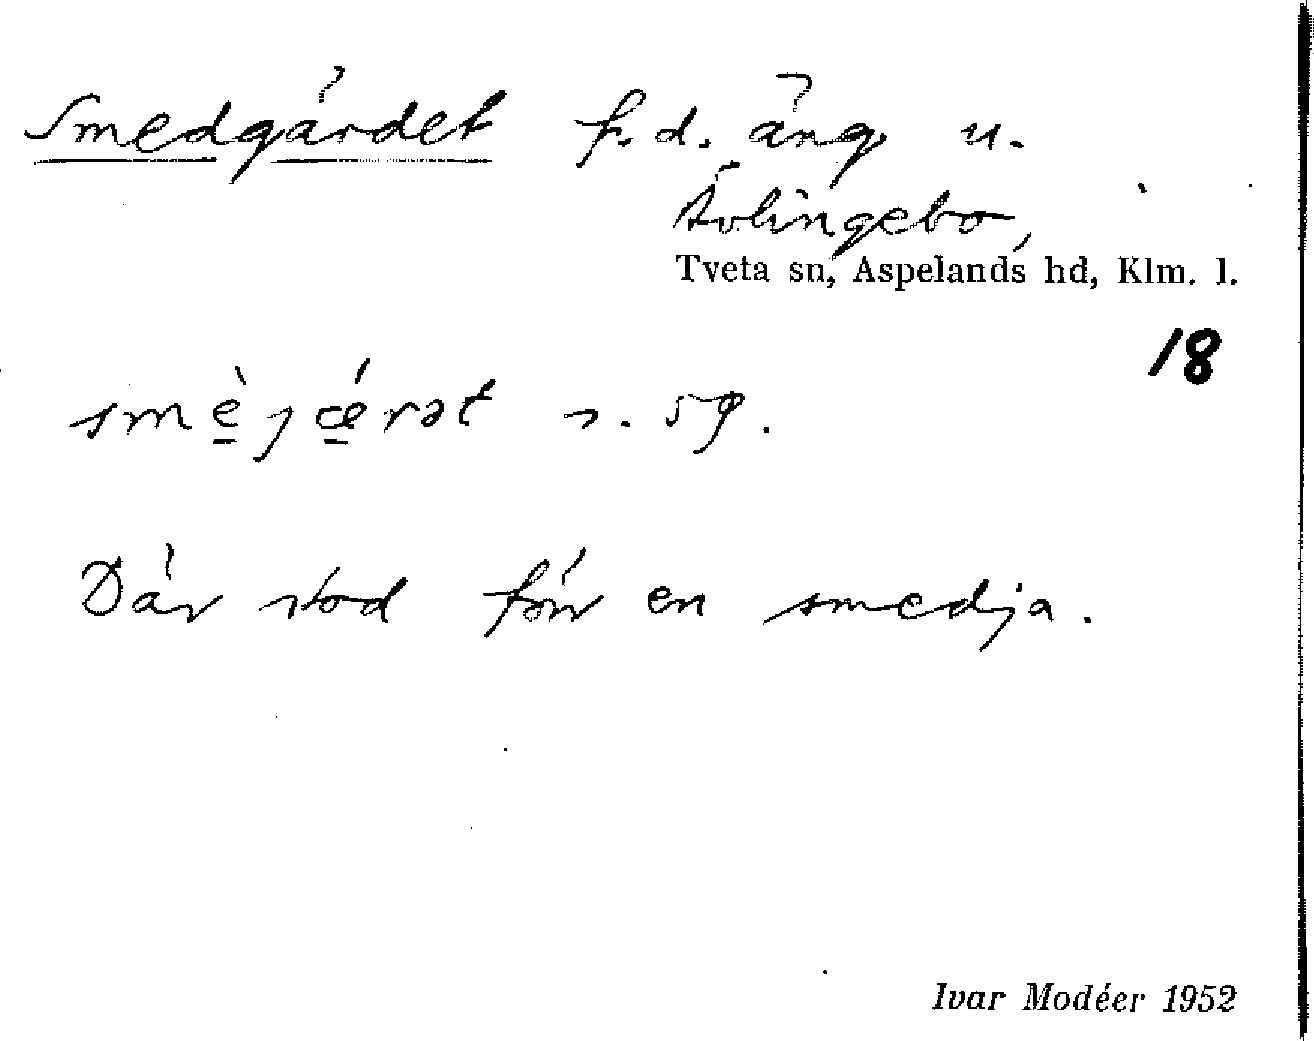 Smedgärdet f.d. äng u.
Ävlingebo,
Tveta sn, Aspelands hd, Klm. l.
18
smèjǽrət n. sg.
Där stod förr en smedja.
Ivar Modéer 1952